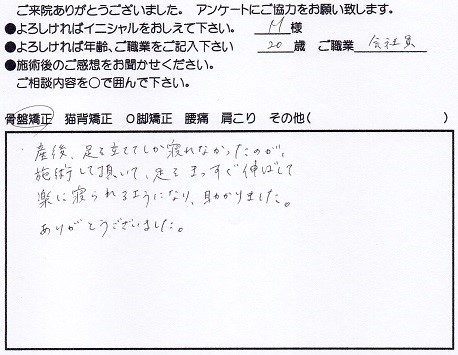 ご来院ありがとうございました。 アンケートにご協力をお願い致します。
●よろしければイニシャルをおしえて下さい。 M 様
●よろしければ年齢、ご職業をご記入下さい 20 歳 ご職業 会社員
●施術後のご感想をお聞かせください。
ご相談内容を○で囲んで下さい。
骨盤矯正 猫背矯正 O脚矯正 腰痛 肩こり その他( )
産後、足を立ててしか寝れなかったのが、
施術して頂いて、足をまっすぐ伸ばして
楽に寝られるようになり、助かりました。
ありがとうございました。